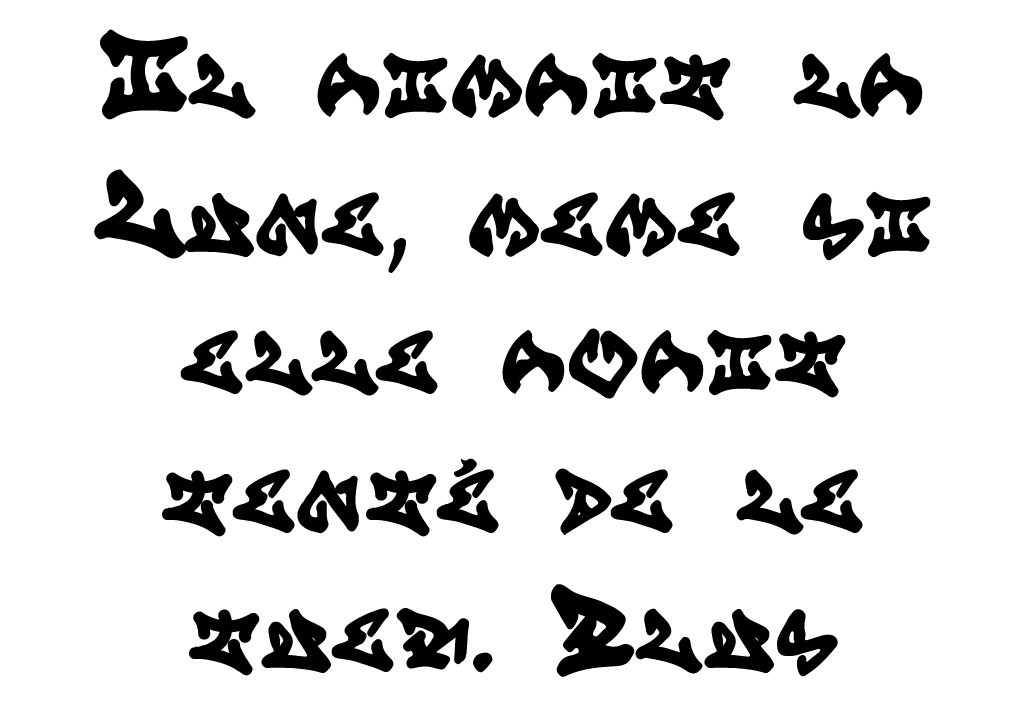 Il aimait la
Lune, meme si
elle avait
tenté de le
tuer. Plus